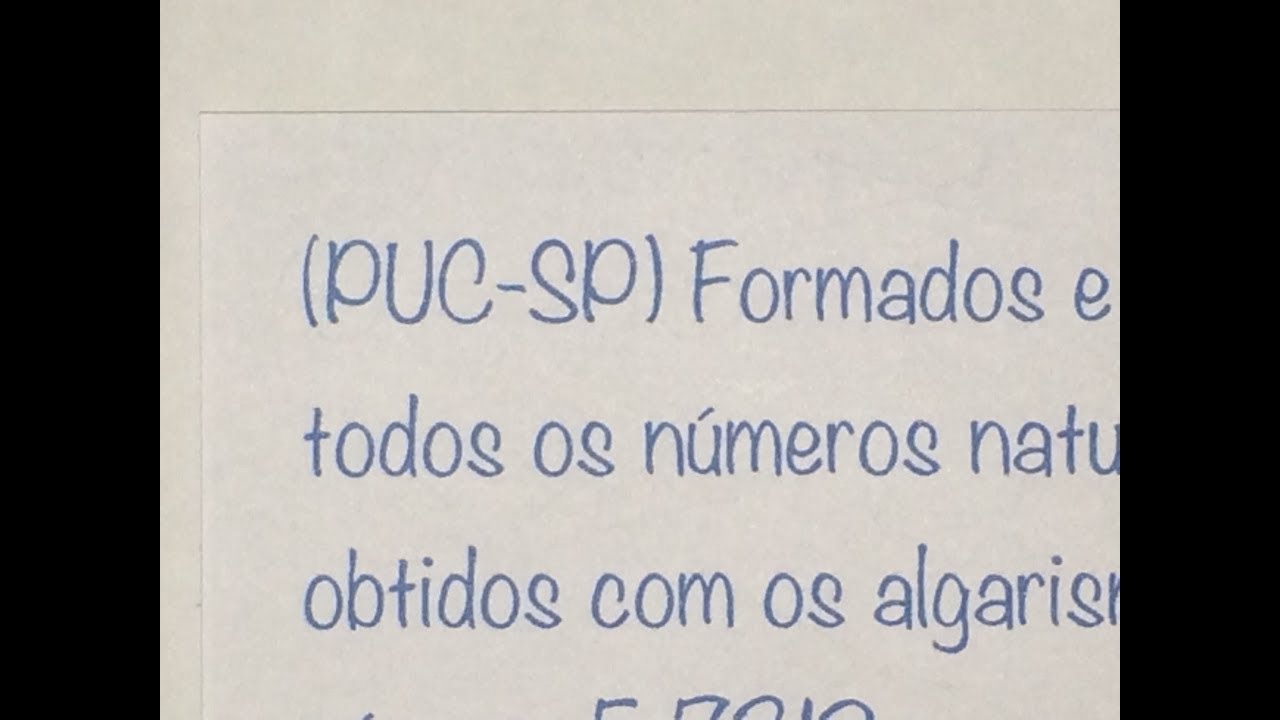 (PUC-SP) Formados e
todos os números natu
obtidos com os algarism